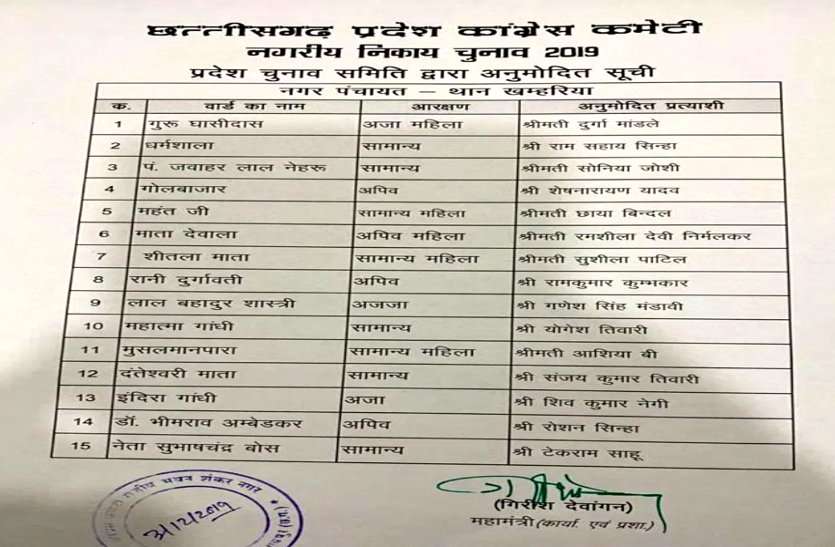 छत्तीसगढ़ प्रदेश कांग्रेस कमेटी
नगरीय निकाय चुनाव 2019
प्रदेश चुनाव समिति द्वारा अनुमोदित सूची
नगर पंचायत – थान खम्हरिया
क. वार्ड का नाम आरक्षण अनुमोदित प्रत्याशी
1 गुरू घासीदास अजा महिला श्रीमती दुर्गा मांडले
2 धर्मशाला सामान्य श्री राम सहाय सिन्हा
3 पं. जवाहर लाल नेहरू सामान्य श्रीमती सोनिया जोशी
4 गोलबाजार अपिव श्री शेषनारायण यादव
5 महंत जी सामान्य महिला श्रीमती छाया बिन्दल
6 माता देवाला अपिव महिला श्रीमती रमशीला देवी निर्मलकर
7 शीतला माता सामान्य महिला श्रीमती सुशीला पाटिल
8 रानी दुर्गावती अपिव श्री रामकुमार कुम्भकार
9 लाल बहादुर शास्त्री अजजा श्री गणेश सिंह मंडावी
10 महात्मा गांधी सामान्य श्री योगेश तिवारी
11 मुसलमानपारा सामान्य महिला श्रीमती आशिया बी
12 दंतेश्वरी माता सामान्य श्री संजय कुमार तिवारी
13 इंदिरा गांधी अजा श्री शिव कुमार नेगी
14 डॉ. भीमराव अम्बेडकर अपिव श्री रोशन सिन्हा
15 नेता सुभाषचंद्र बोस सामान्य श्री टेकराम साहू
राजीव भवन शंकर नगर
3/12/2019
(गिरीश देवांगन)
महामंत्री (कार्या. एवं प्रशा.)